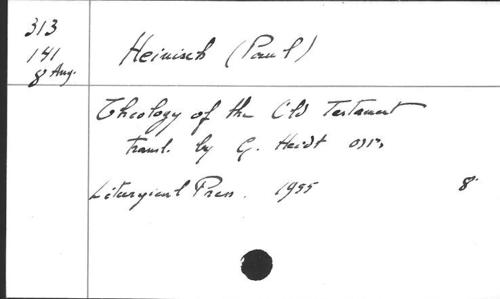 313
141
8 Aug.
Heinisch (Paul)
Theology of the Old Testament
transl. by G. Heidt
Liturgical Press. 1955 8°